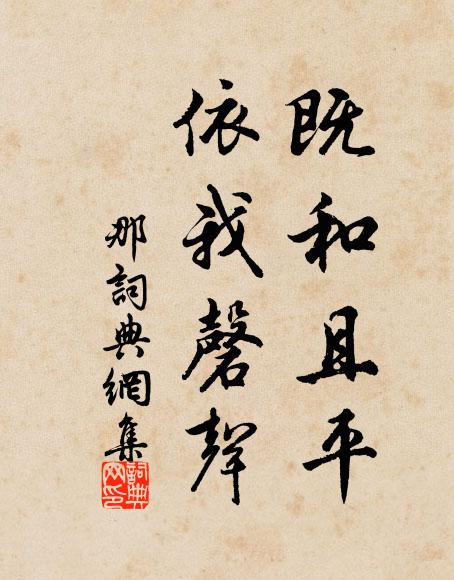 既和且平
依我磬聲
那詞典網集
詞典网印